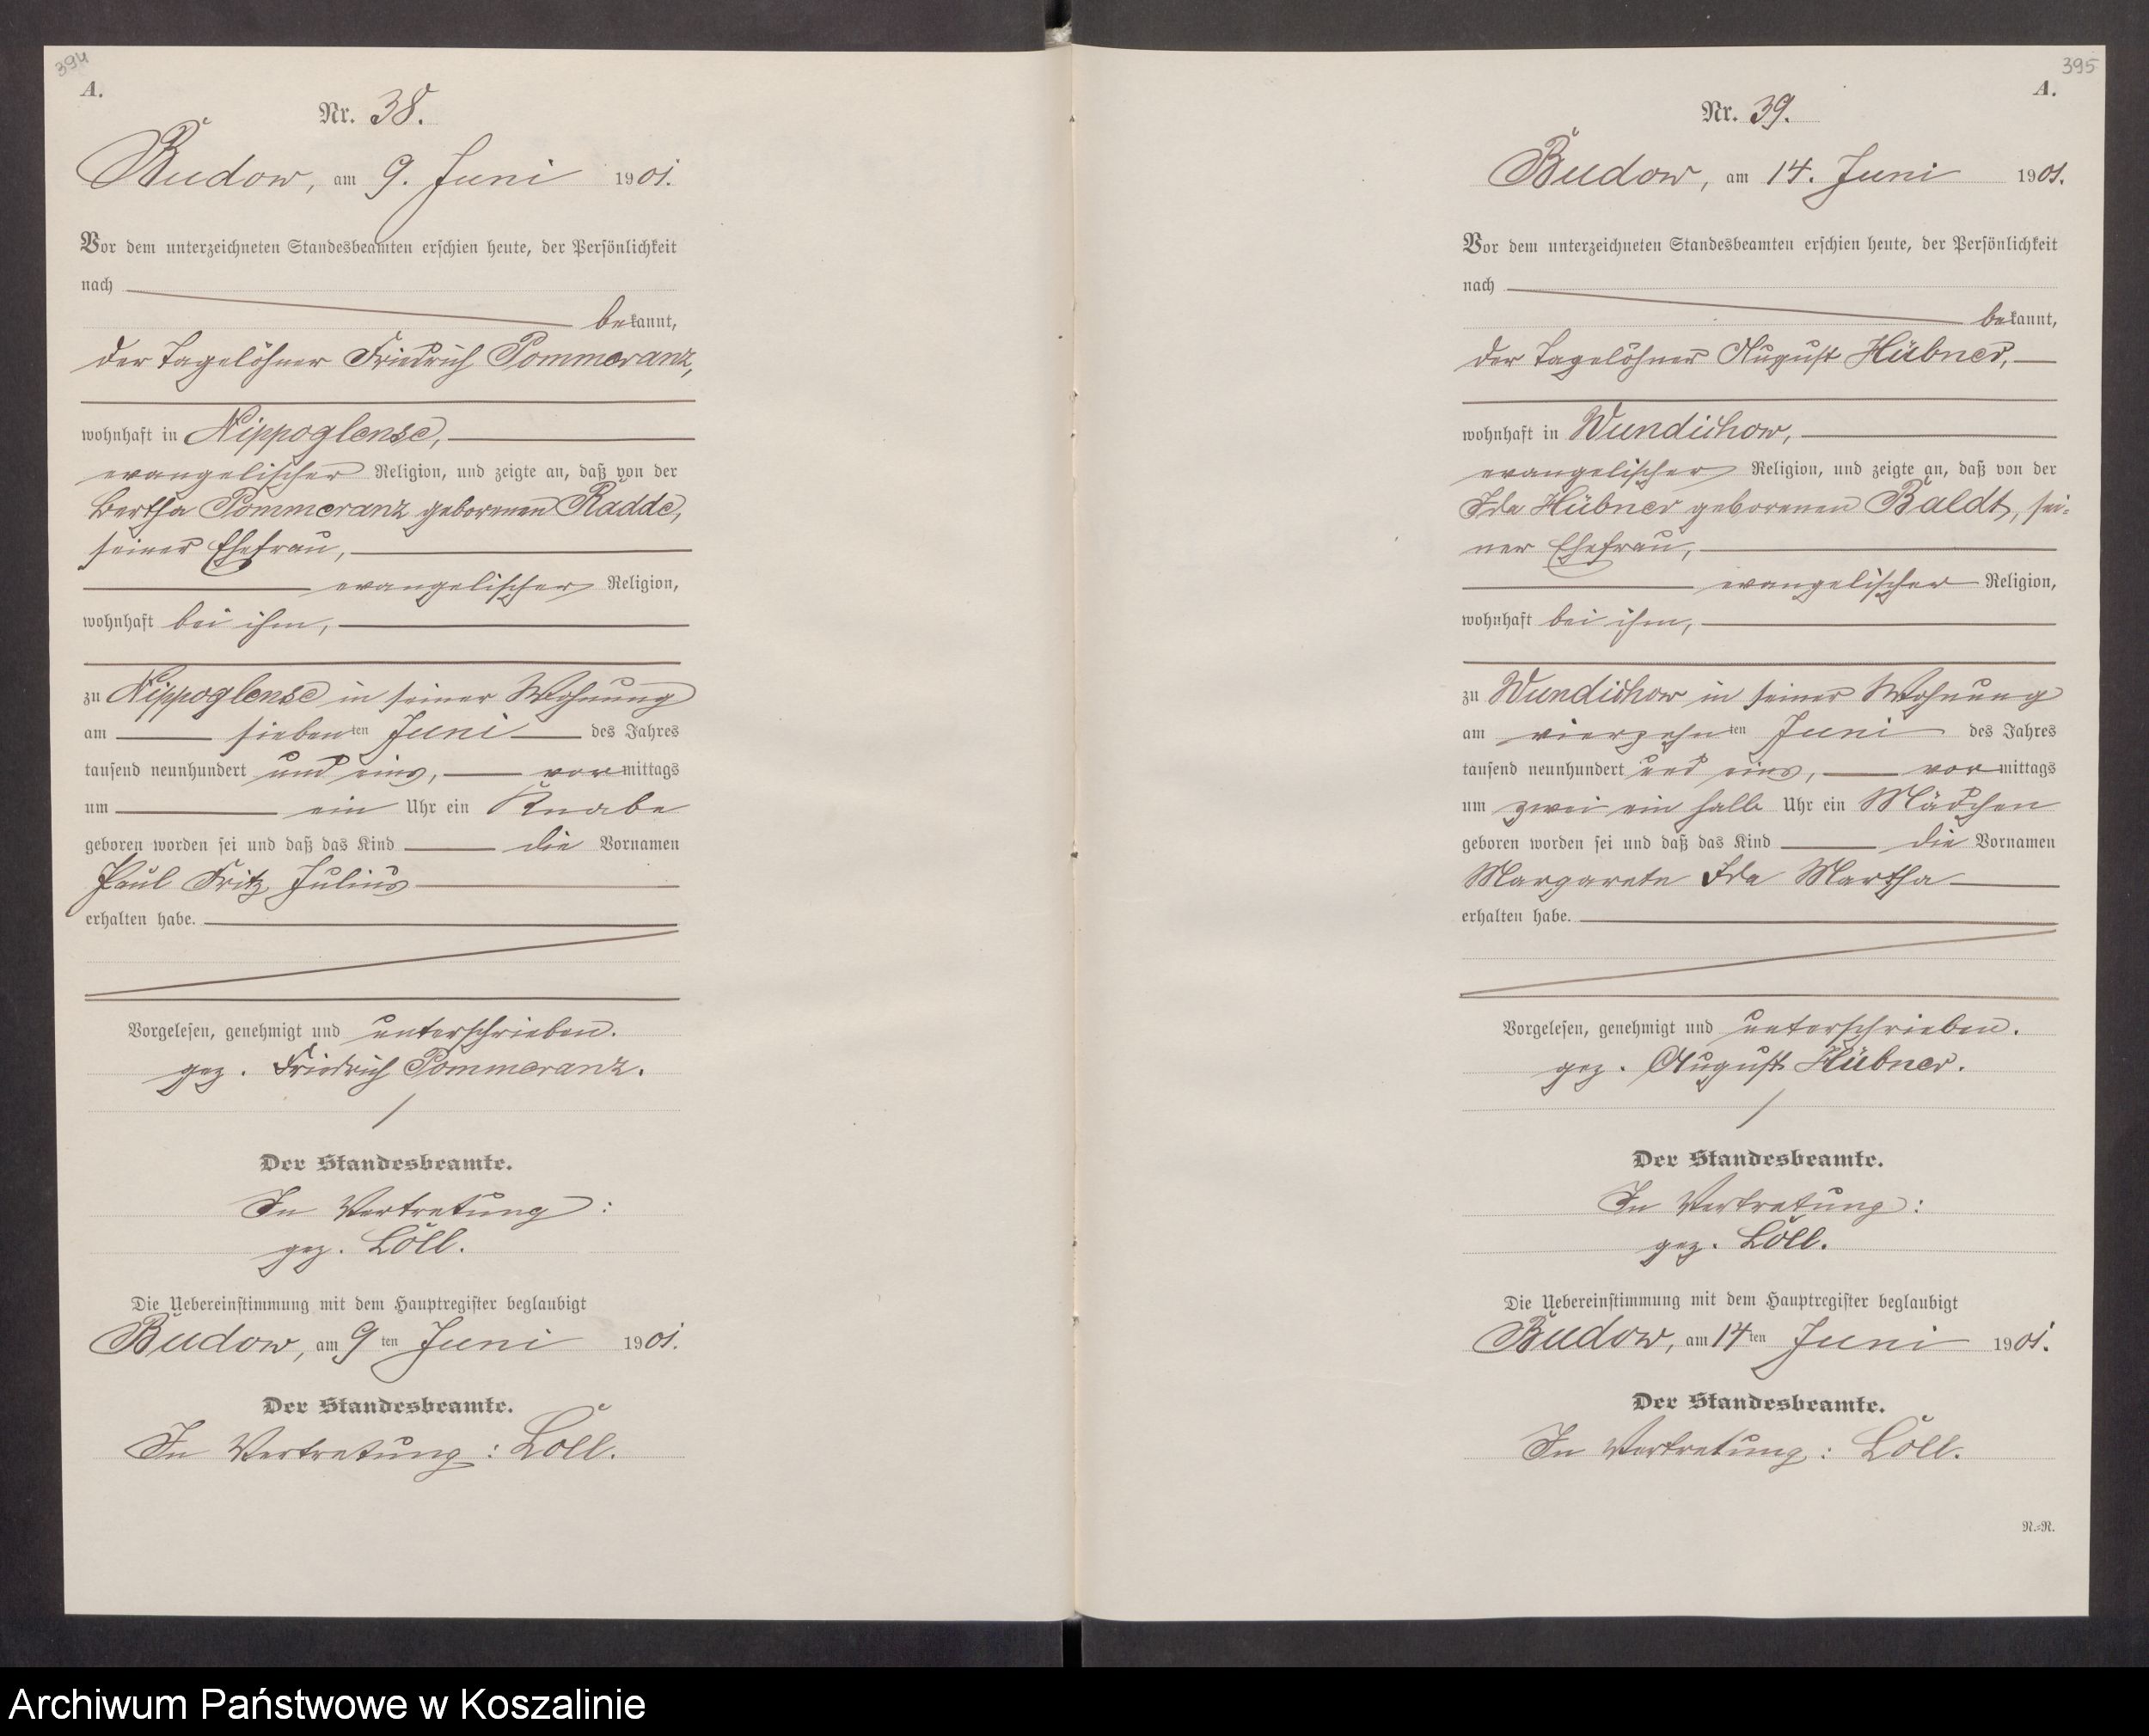 394
A.
Nr. 38.
Budow, am 9. Juni 1901.
Vor dem unterzeichneten Standesbeamten erschien heute, der Persönlichkeit
nach
bekannt,
der Tagelöhner Friedrich Pommeranz,
wohnhaft in Nippoglense,
evangelischer Religion, und zeigte an, daß von der
Bertha Pommeranz geborenen Radde,
seiner Ehefrau,
evangelischer Religion,
wohnhaft bei ihm,
zu Nippoglense in seiner Wohnung
am siebenten Juni des Jahres
tausend neunhundert und eins, vormittags
um ein Uhr ein Knabe
geboren worden sei und daß das Kind die Vornamen
Paul Fritz Julius
erhalten habe.
Vorgelesen, genehmigt und unterschrieben.
gez. Friedrich Pommeranz.
Der Standesbeamte.
In Vertretung:
gez. Löll.
Die Uebereinstimmung mit dem Hauptregister beglaubigt
Budow, am 9ten Juni 1901.
Der Standesbeamte.
In Vertretung: Löll.
395
A.
Nr. 39.
Budow, am 14. Juni 1901.
Vor dem unterzeichneten Standesbeamten erschien heute, der Persönlichkeit
nach
bekannt,
der Tagelöhner August Hübner,
wohnhaft in Wundichow,
evangelischer Religion, und zeigte an, daß von der
Ida Hübner geborenen Baldt, sei-
ner Ehefrau,
evangelischer Religion,
wohnhaft bei ihm,
zu Wundichow in seiner Wohnung
am vierzehnten Juni des Jahres
tausend neunhundert und eins, vormittags
um zwei ein halb Uhr ein Mädchen
geboren worden sei und daß das Kind die Vornamen
Margarete Ida Martha
erhalten habe.
Vorgelesen, genehmigt und unterschrieben.
gez. August Hübner.
Der Standesbeamte.
In Vertretung:
gez. Löll.
Die Uebereinstimmung mit dem Hauptregister beglaubigt
Budow, am 14ten Juni 1901.
Der Standesbeamte.
In Vertretung: Löll.
N.-N.
Archiwum Państwowe w Koszalinie